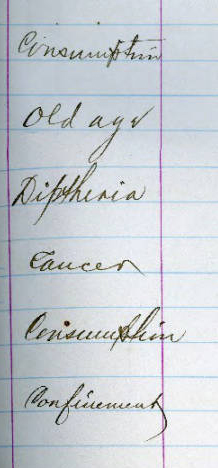 Consumption
Old age
Diptheria
Cancer
Consumption
Confinement